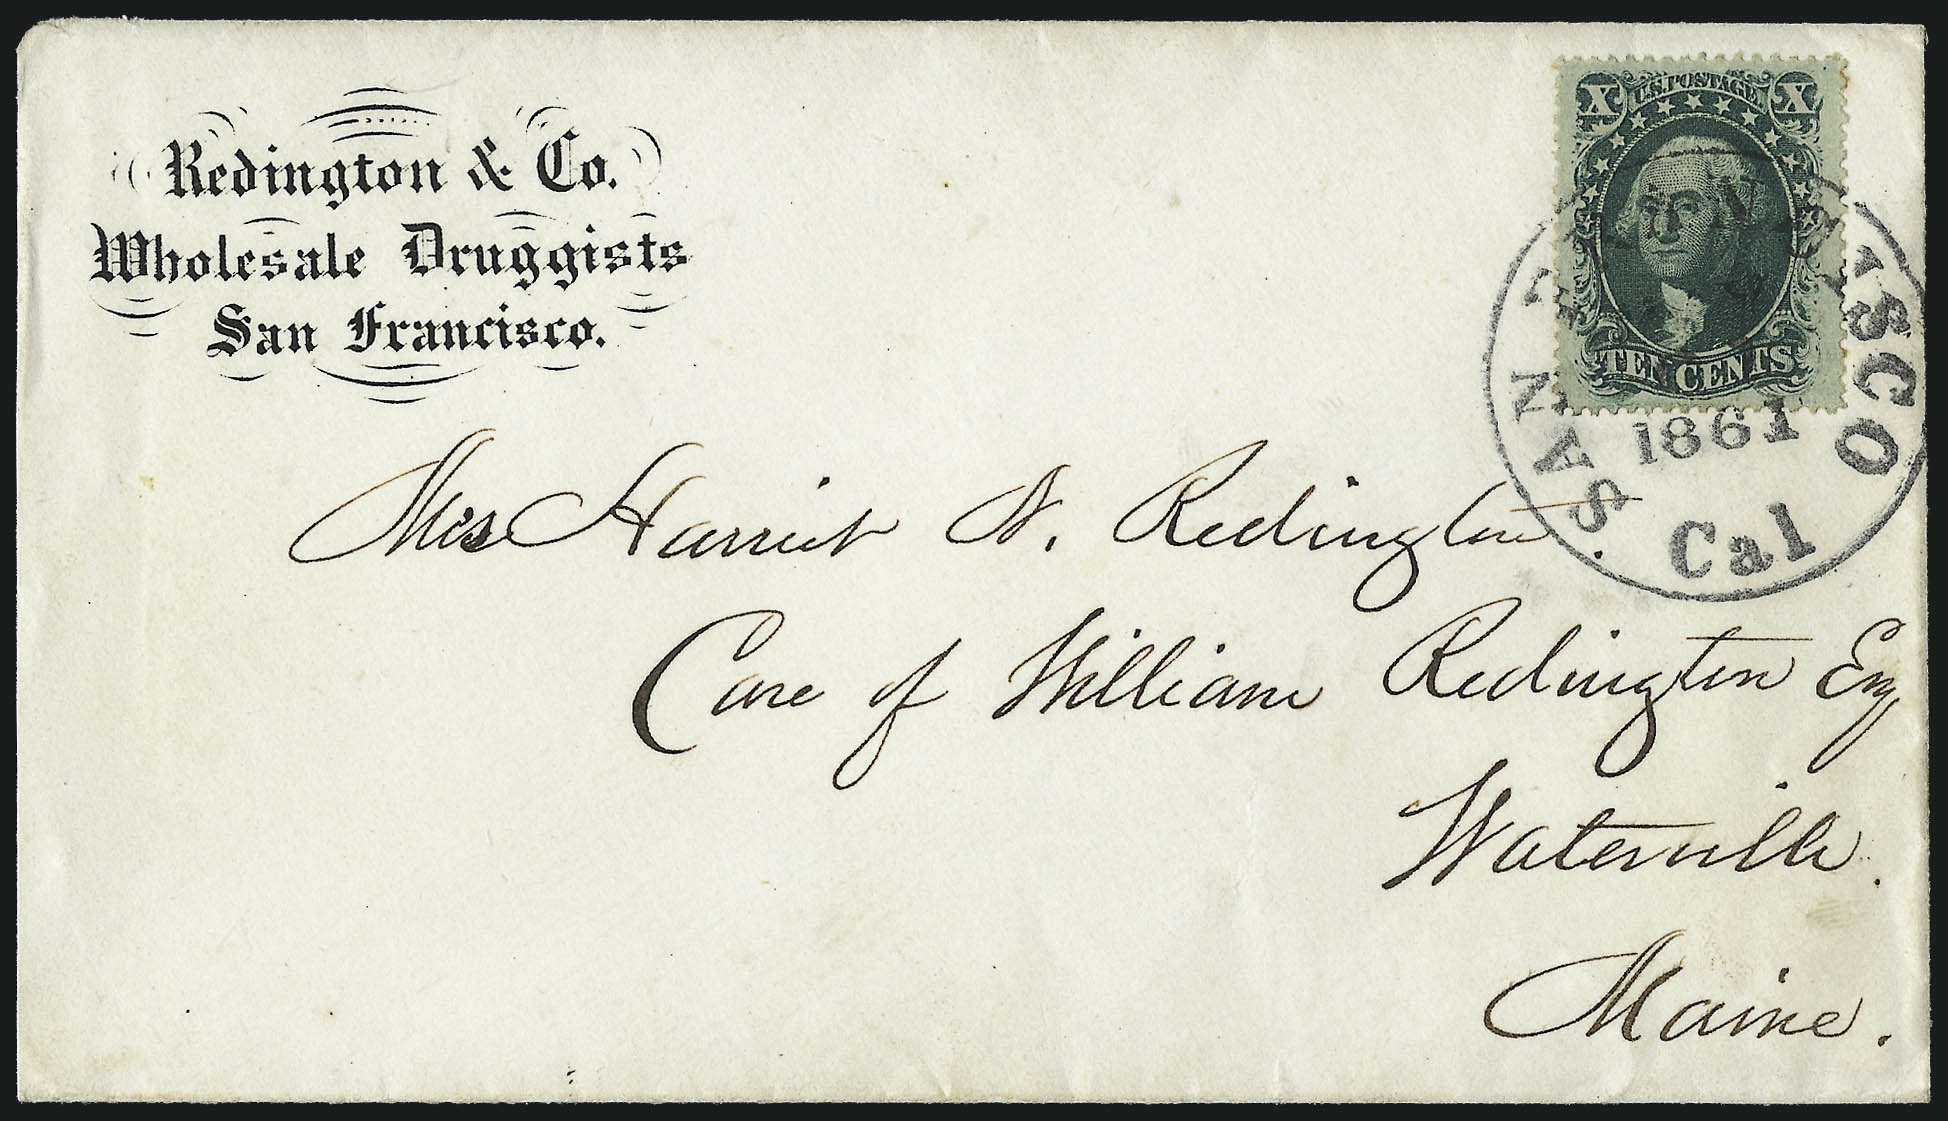 Redington & Co.
Wholesale Druggists
San Francisco.
X U.S.POSTAGE X
TEN CENTS
SAN FRANCISCO
1861
Cal
Mrs Harriet N. Redington.
Care of William Redington Esq
Waterville.
Maine.